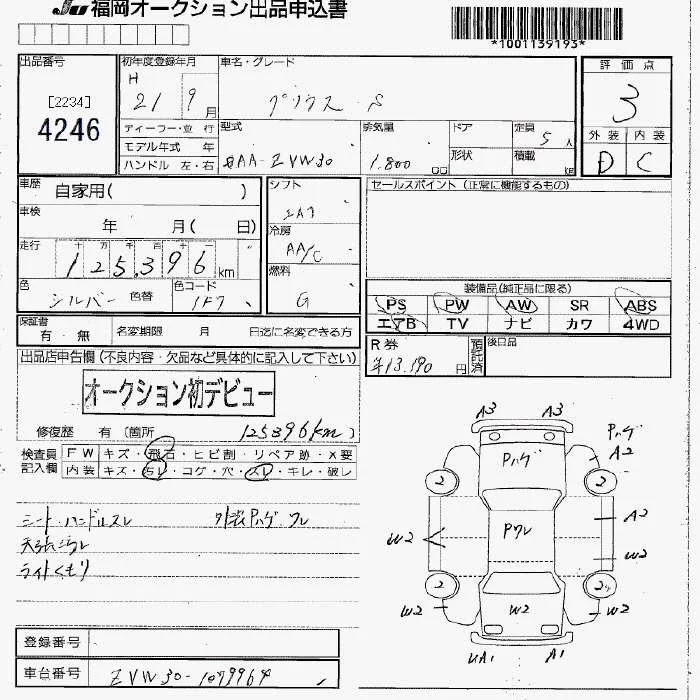 JU 福岡オークション出品申込書
*1001139193*
出品番号
[2234]
4246
初年度登録年月
H 21 9 月
車名・グレード
プリウス S
評価点
3
ディーラー・並 行
モデル年式 年
ハンドル 左・右
型式
DAA-ZVW30
排気量
1.800 cc
ドア
形状
定員
5 人
積載
kg
外装 内装
D C
車歴
自家用( )
車検
年 月( 日)
走行
十 万 千 百 十
125,396 km
色
シルバー 色替
色コード
1F7
シフト
IAT
冷房
AA/C
燃料
G
セールスポイント (正常に機能するもの)
装備品(純正品に限る)
PS PW AW SR ABS
エアB TV ナビ カワ 4WD
保証書
有・無
名変期限 月 日迄に名変できる方
R券
¥13,190 円
預託済
後日品
出品店申告欄 (不良内容・欠品など具体的に記入して下さい)
オークション初デビュー
修復歴 有 (箇所 125396km)
検査員記入欄
FW キズ・飛石・ヒビ割・リペア跡・X要
内装 キズ・汚レ・コゲ・穴・スレ・キレ・破レ
シート・ハンドルスレ 外装Pハゲ ワレ
天張汚レ
ライトくもり
A3 A3
Pハゲ
A2
Pハゲ
2 2
A2
W2
Pワレ
W2
2 2
W2 W2 W2
UA1 A1
登録番号
車台番号
ZVW30-1079964